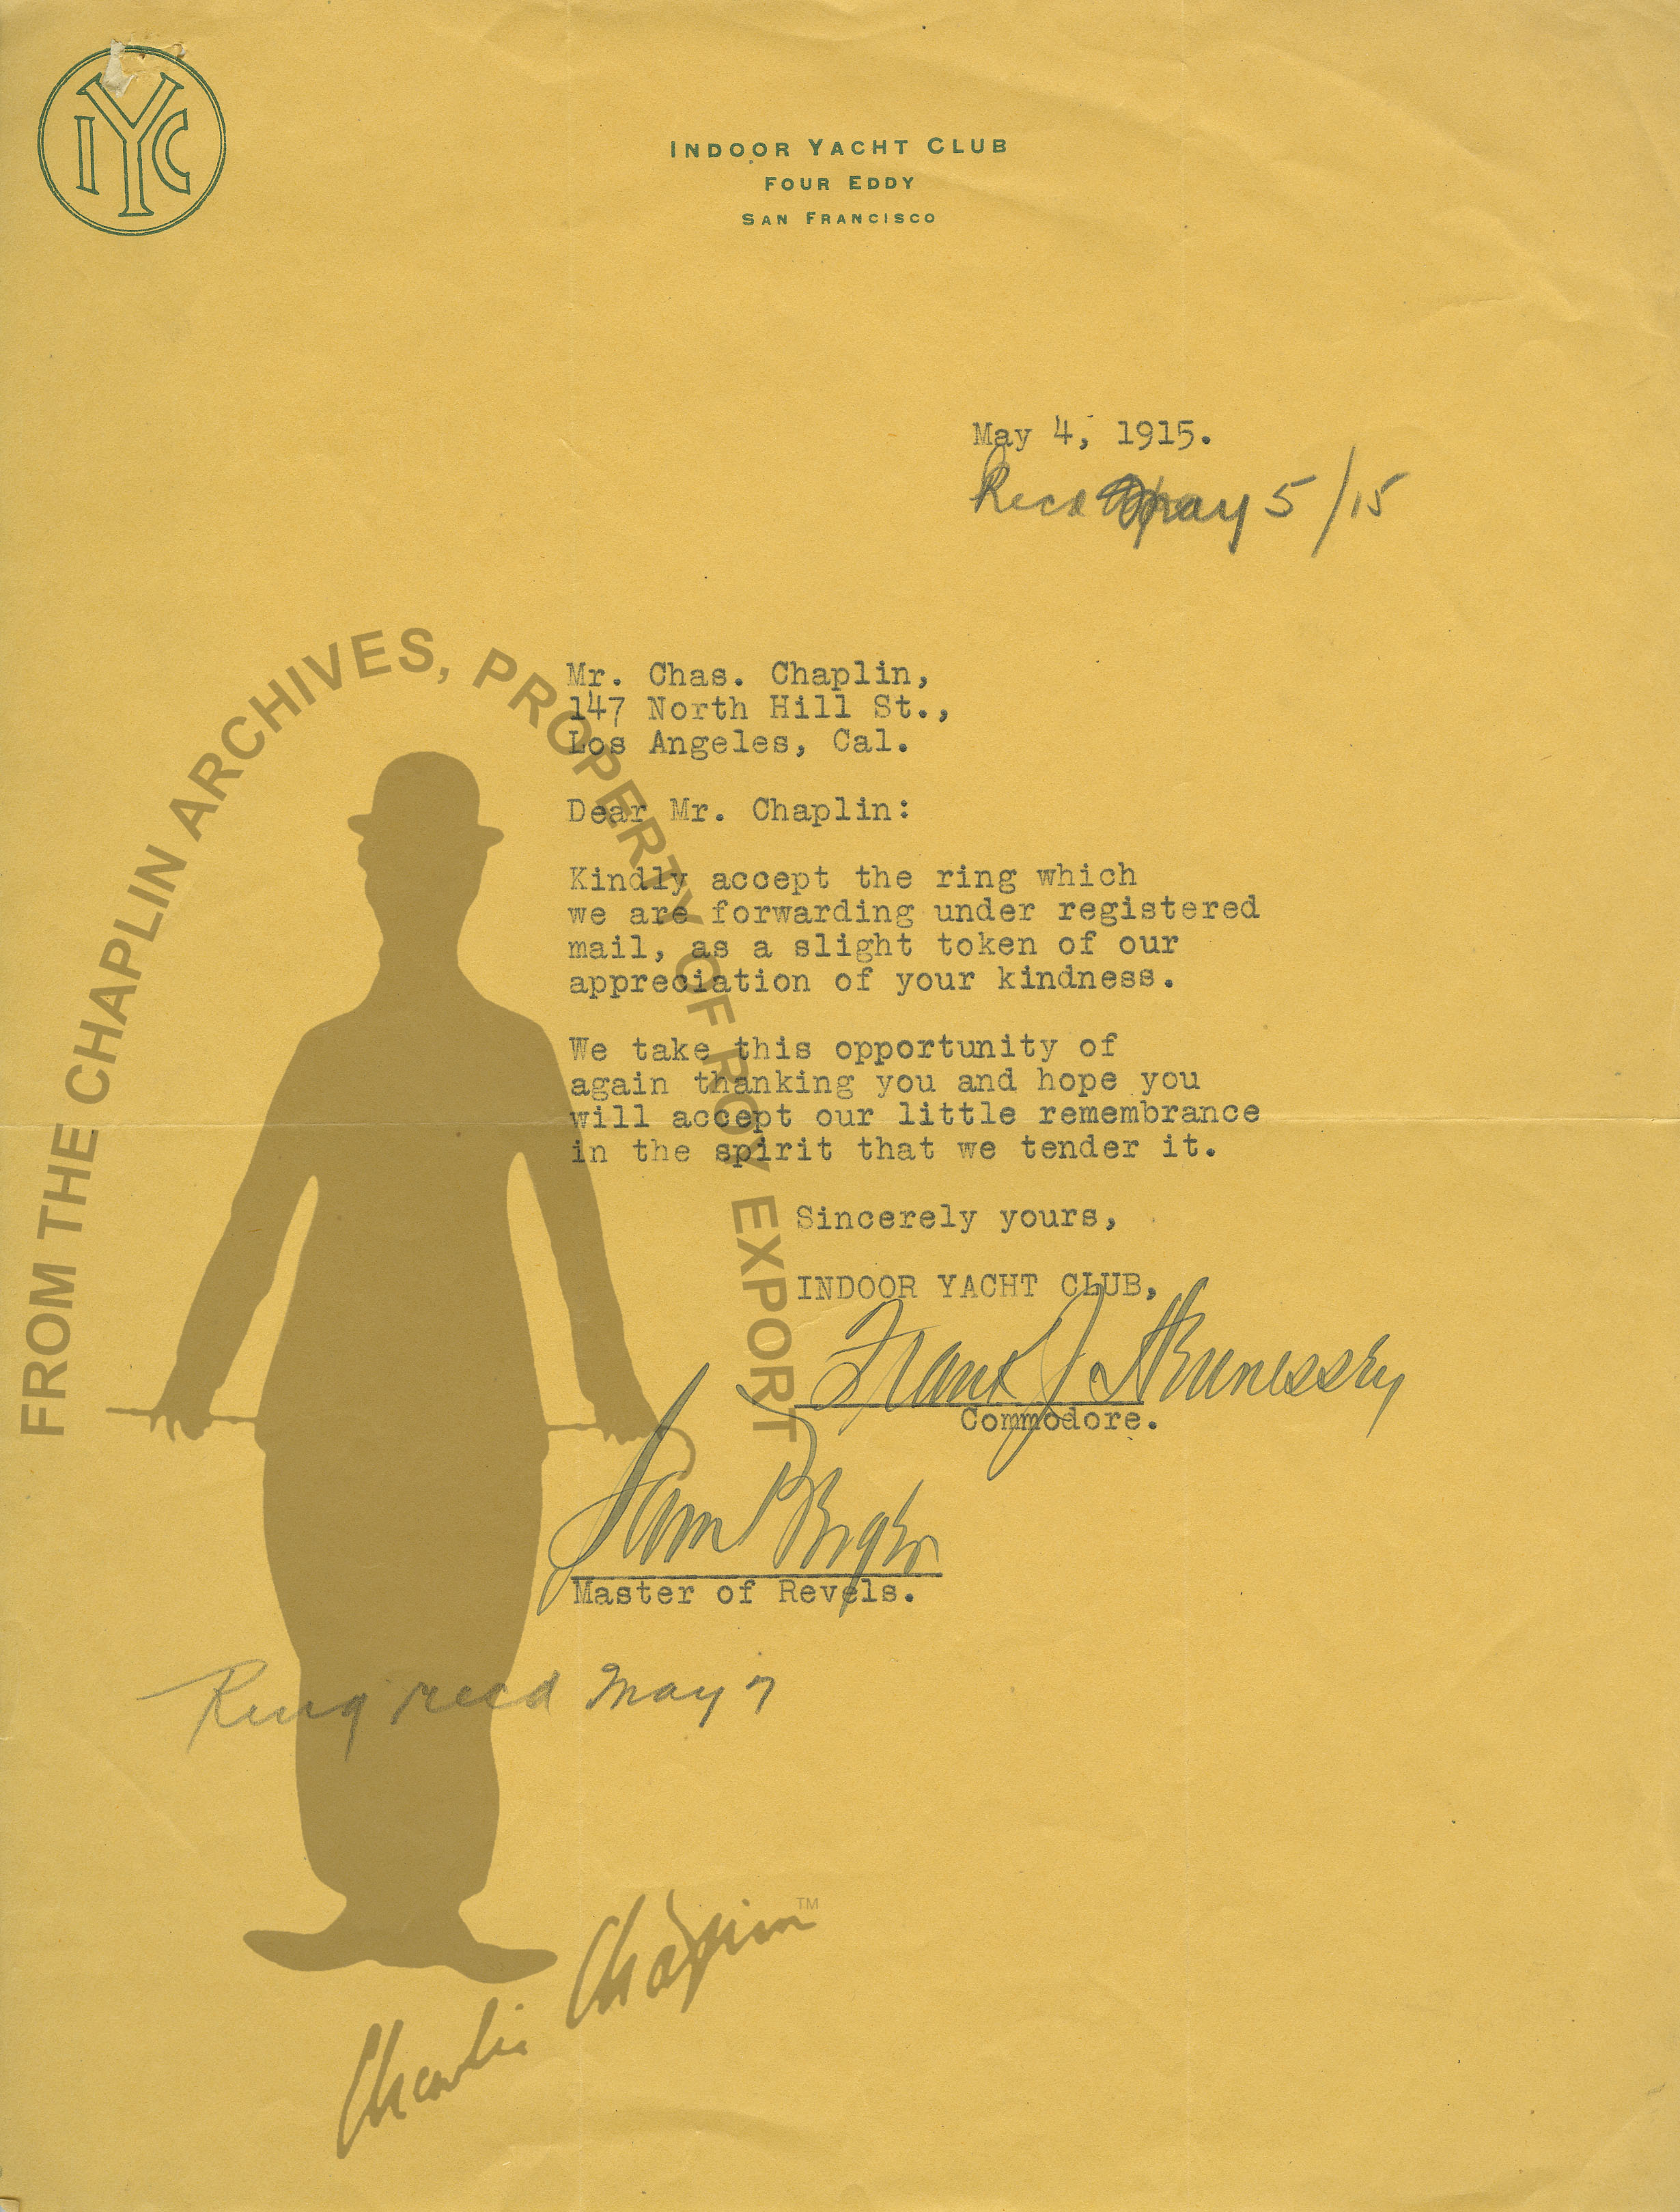 IYC
INDOOR YACHT CLUB
FOUR EDDY
SAN FRANCISCO
May 4, 1915.
Recd May 5/15
Mr. Chas. Chaplin,
147 North Hill St.,
Los Angeles, Cal.
Dear Mr. Chaplin:
Kindly accept the ring which
we are forwarding under registered
mail, as a slight token of our
appreciation of your kindness.
We take this opportunity of
again thanking you and hope you
will accept our little remembrance
in the spirit that we tender it.
Sincerely yours,
INDOOR YACHT CLUB,
Frank J Hennessey
Commodore.
Sam Berger
Master of Revels.
Ring recd May 7
FROM THE CHAPLIN ARCHIVES, PROPERTY OF ROY EXPORT
Charlie Chaplin™